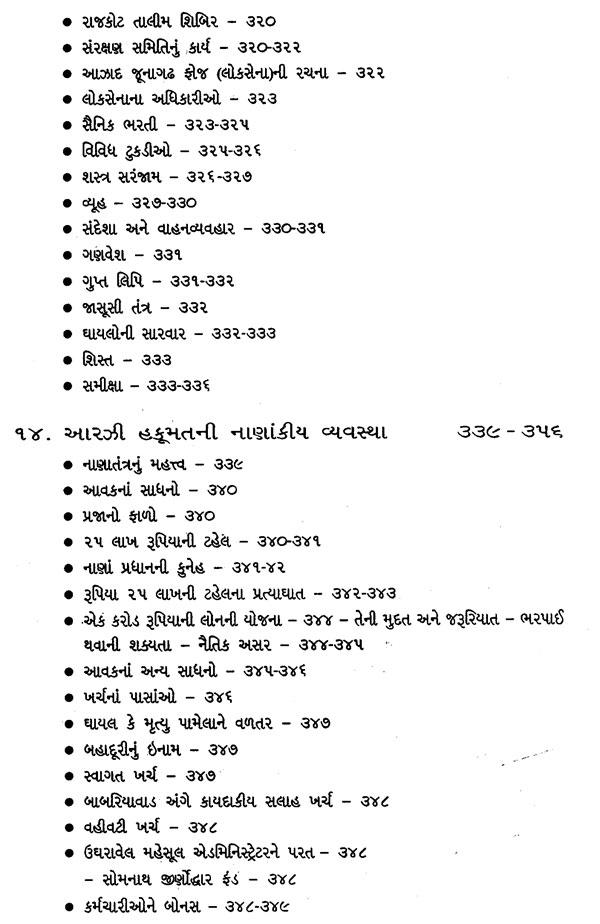 ● રાજકોટ તાલીમ શિબિર – ૩૨૦
● સંરક્ષણ સમિતિનું કાર્ય – ૩૨૦-૩૨૨
● આઝાદ જૂનાગઢ ફોજ (લોકસેના)ની રચના – ૩૨૨
● લોકસેનાના અધિકારીઓ – ૩૨૩
● સૈનિક ભરતી – ૩૨૩-૩૨૫
● વિવિધ ટુકડીઓ – ૩૨૫-૩૨૬
● શસ્ત્ર સરંજામ – ૩૨૬-૩૨૭
● વ્યૂહ – ૩૨૭-૩૩૦
● સંદેશા અને વાહનવ્યવહાર – ૩૩૦-૩૩૧
● ગણવેશ – ૩૩૧
● ગુપ્ત લિપિ – ૩૩૧-૩૩૨
● જાસૂસી તંત્ર – ૩૩૨
● ઘાયલોની સારવાર – ૩૩૨-૩૩૩
● શિસ્ત – ૩૩૩
● સમીક્ષા – ૩૩૩-૩૩૬
૧૪. આરઝી હકૂમતની નાણાંકીય વ્યવસ્થા ૩૩૯ - ૩૫૬
● નાણાતંત્રનું મહત્ત્વ – ૩૩૯
● આવકનાં સાધનો – ૩૪૦
● પ્રજાનો ફાળો – ૩૪૦
● ૨૫ લાખ રૂપિયાની ટહેલ – ૩૪૦-૩૪૧
● નાણાં પ્રધાનની કુનેહ – ૩૪૧-૪૨
● રૂપિયા ૨૫ લાખની ટહેલના પ્રત્યાઘાત – ૩૪૨-૩૪૩
● એક કરોડ રૂપિયાની લોનની યોજના – ૩૪૪ – તેની મુદત અને જરૂરિયાત – ભરપાઈ
થવાની શક્યતા – નૈતિક અસર – ૩૪૪-૩૪૫
● આવકનાં અન્ય સાધનો – ૩૪૫-૩૪૬
● ખર્ચનાં પાસાંઓ – ૩૪૬
● ઘાયલ કે મૃત્યુ પામેલાને વળતર – ૩૪૭
● બહાદૂરીનું ઇનામ – ૩૪૭
● સ્વાગત ખર્ચ – ૩૪૭
● બાબરિયાવાડ અંગે કાયદાકીય સલાહ ખર્ચ – ૩૪૮
● વહીવટી ખર્ચ – ૩૪૮
● ઉઘરાવેલ મહેસૂલ એડમિનિસ્ટ્રેટરને પરત – ૩૪૮
– સોમનાથ જીર્ણોદ્ધાર ફંડ – ૩૪૮
● કર્મચારીઓને બોનસ – ૩૪૮-૩૪૯